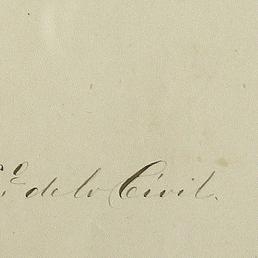 de lo Civil.